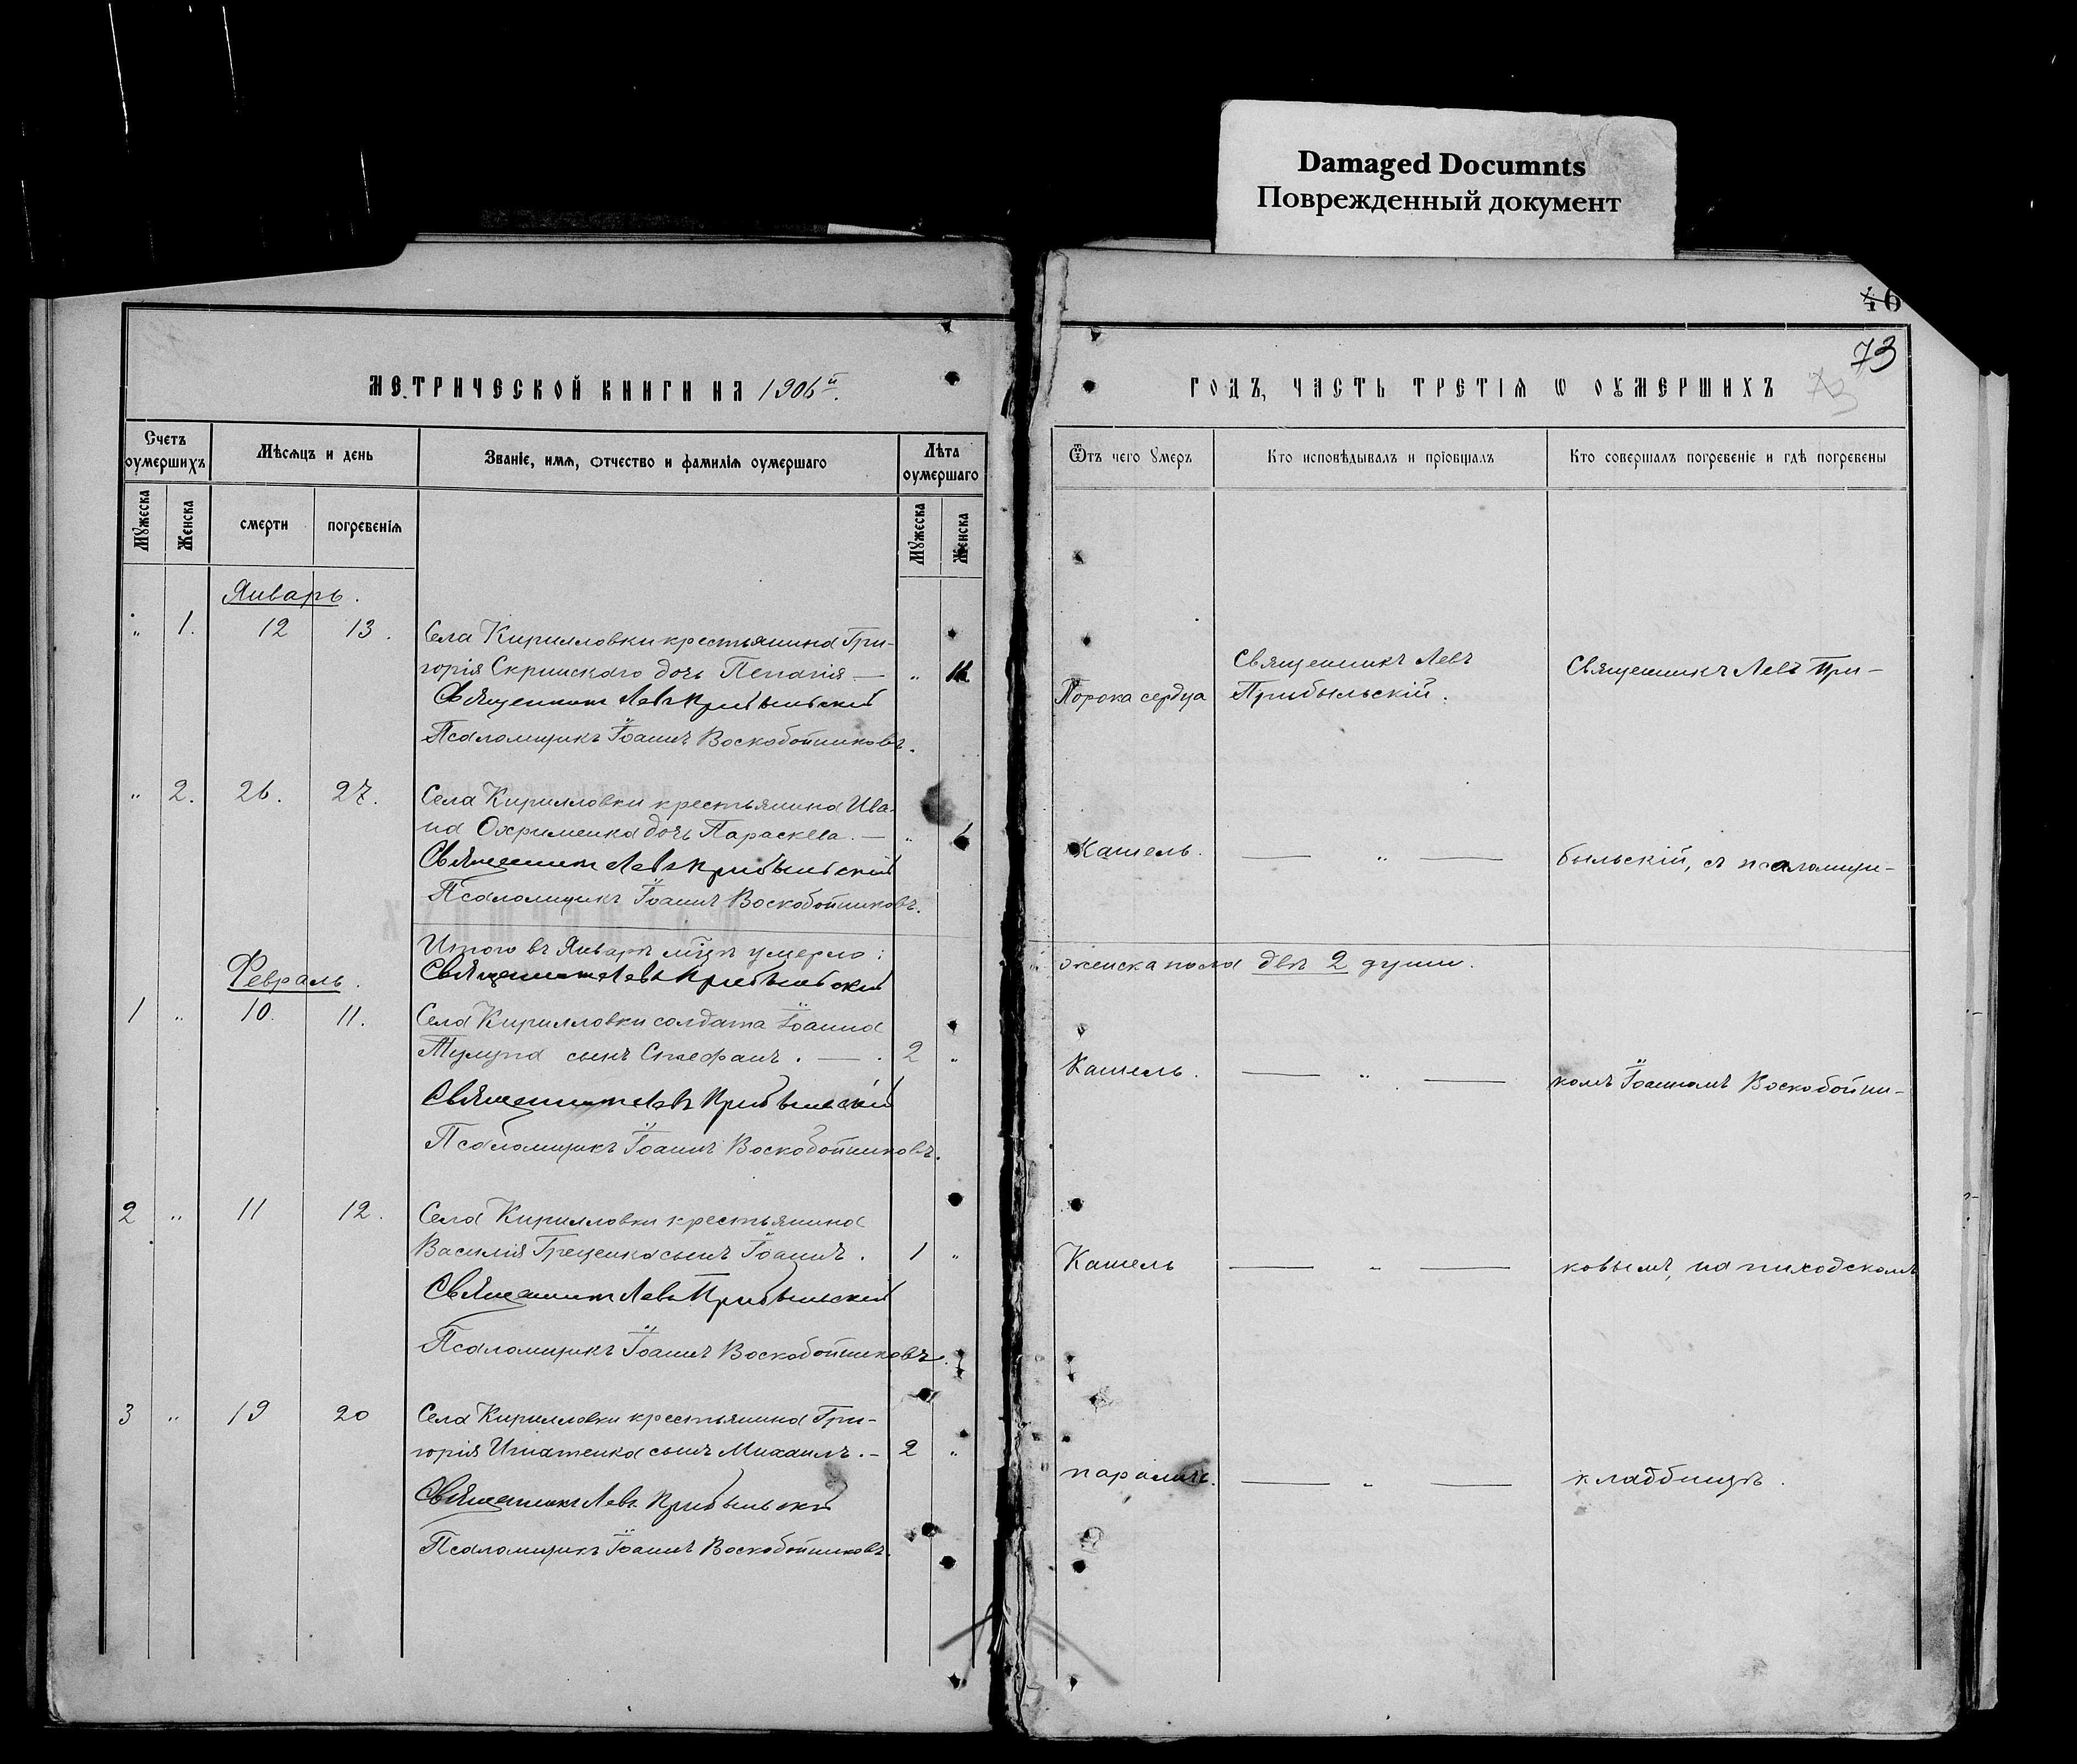 Damaged Documnts
Поврежденный документ
46
73
МЕТРИЧЕСКОЙ КНИГИ НА 1906й.
Счетъ оумершихъ
Мѣсѧцъ и день
Званіе, имѧ, отчество и фамиліѧ оумершаго
Лѣта оумершаго
Мꙋжеска
Женска
смерти
погребеніѧ
Мꙋжеска
Женска
Январь.
„ 1. 12 13. Села Кирилловки крестьянина Гри-
горія Скринскаго дочь Пелагія — „ 11
Священникъ Левъ Прибыльскій
Псаломщикъ Іоаннъ Воскобойниковъ.
„ 2. 26. 27. Села Кирилловки крестьянина Ива-
на Охрименка дочь Параскева. — „ 1
Священникъ Левъ Прибыльскій
Псаломщикъ Іоаннъ Воскобойниковъ.
Итого въ Январѣ мцѣ умерло:
Февраль.
Священникъ Левъ Прибыльскій
1 „ 10. 11. Села Кирилловки солдата Іоанна
Тулупа сынъ Стефанъ. — . 2 „
Священникъ Левъ Прибыльскій
Псаломщикъ Іоаннъ Воскобойниковъ.
2 „ 11 12. Села Кирилловки крестьянина
Василія Греценка сынъ Іоаннъ. 1 „
Священникъ Левъ Прибыльскій
Псаломщикъ Іоаннъ Воскобойниковъ.
3 „ 19 20 Села Кирилловки крестьянина Гри-
горія Игнатенка сынъ Михаилъ. – 2 „
Священникъ Левъ Прибыльскій
Псаломщикъ Іоаннъ Воскобойниковъ.
ГОДЪ, ЧАСТЬ ТРЕТІѦ Ѡ ОУМЕРШИХЪ
73
Ѿтъ чего ꙋмеръ
Кто исповѣдывалъ и пріобщалъ
Кто совершалъ погребеніе и гдѣ погребены
Порока сердца
Священникъ Левъ
Прибыльскій.
Священникъ Левъ При-
Кашель. — „ — быльскій, съ псаломщи-
женска пола двѣ 2 души.
Кашель. — „ — комъ Іоанномъ Воскобойни-
Кашель — „ — ковымъ, на пиходскомъ
параличъ. — „ — кладбищѣ.